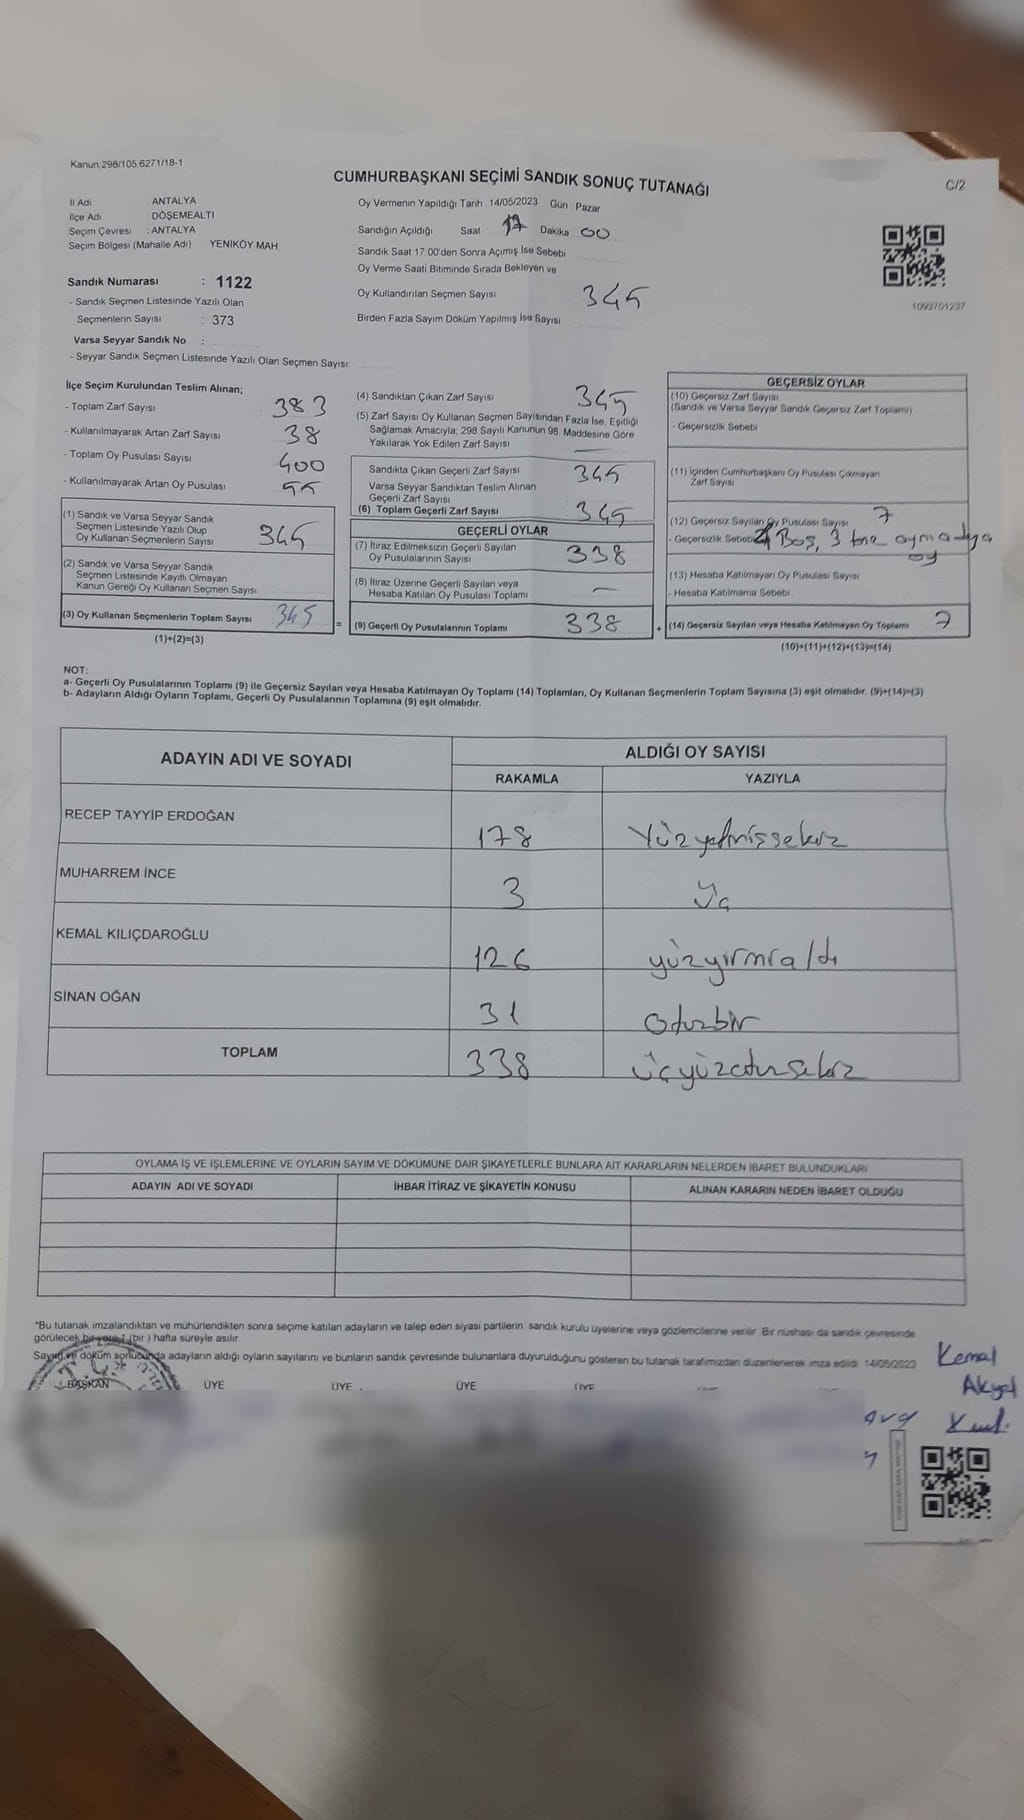 Kanun 298/105 6271/18-1
CUMHURBAŞKANI SEÇİMİ SANDIK SONUÇ TUTANAĞI
C/2
İl Adı ANTALYA
İlçe Adı DÖŞEMEALTI
Seçim Çevresi : ANTALYA
Seçim Bölgesi (Mahalle Adı) YENİKÖY MAH
Oy Vermenin Yapıldığı Tarih 14/05/2023 Gün Pazar
Sandığın Açıldığı Saat 17 Dakika 00
Sandık Saat 17 00'den Sonra Açımış İse Sebebi
Oy Verme Saati Bitiminde Sırada Bekleyen ve
Oy Kullandırılan Seçmen Sayısı 345
Birden Fazla Sayım Döküm Yapılmış İse Sayısı
1093701237
Sandık Numarası : 1122
- Sandık Seçmen Listesinde Yazılı Olan
Seçmenlerin Sayısı : 373
Varsa Seyyar Sandık No :
- Seyyar Sandık Seçmen Listesinde Yazılı Olan Seçmen Sayısı
İlçe Seçim Kurulundan Teslim Alınan;
- Toplam Zarf Sayısı 383
- Kullanılmayarak Artan Zarf Sayısı 38
- Toplam Oy Pusulası Sayısı 400
- Kullanılmayarak Artan Oy Pusulası 55
(1) Sandık ve Varsa Seyyar Sandık
Seçmen Listesinde Yazılı Olup
Oy Kullanan Seçmenlerin Sayısı 345
(2) Sandık ve Varsa Seyyar Sandık
Seçmen Listesinde Kayıtlı Olmayan
Kanun Gereği Oy Kullanan Seçmen Sayısı
(3) Oy Kullanan Seçmenlerin Toplam Sayısı 345 =
(1)+(2)=(3)
(4) Sandıktan Çıkan Zarf Sayısı 345
(5) Zarf Sayısı Oy Kullanan Seçmen Sayısından Fazla İse, Eşitliği
Sağlamak Amacıyla; 298 Sayılı Kanunun 98. Maddesine Göre
Yakılarak Yok Edilen Zarf Sayısı —
Sandıkta Çıkan Geçerli Zarf Sayısı 345
Varsa Seyyar Sandıktan Teslim Alınan
Geçerli Zarf Sayısı
(6) Toplam Geçerli Zarf Sayısı 345
GEÇERLİ OYLAR
(7) İtiraz Edilmeksizin Geçerli Sayılan
Oy Pusulalarının Sayısı 338
(8) İtiraz Üzerine Geçerli Sayılan veya
Hesaba Katılan Oy Pusulası Toplamı —
(9) Geçerli Oy Pusulalarının Toplamı 338 +
GEÇERSİZ OYLAR
(10) Geçersiz Zarf Sayısı
(Sandık ve Varsa Seyyar Sandık Geçersiz Zarf Toplamı)
- Geçersizlik Sebebi
(11) İçinden Cumhurbaşkanı Oy Pusulası Çıkmayan
Zarf Sayısı
(12) Geçersiz Sayılan Oy Pusulası Sayısı 7
- Geçersizlik Sebebi Boş, 3
oy
(13) Hesaba Katılmayan Oy Pusulası Sayısı
- Hesaba Katılmama Sebebi
(14) Geçersiz Sayılan veya Hesaba Katılmayan Oy Toplamı 7
(10)+(11)+(12)+(13)=(14)
NOT:
a- Geçerli Oy Pusulalarının Toplamı (9) ile Geçersiz Sayılan veya Hesaba Katılmayan Oy Toplamı (14) Toplamları, Oy Kullanan Seçmenlerin Toplam Sayısına (3) eşit olmalıdır. (9)+(14)=(3)
b- Adayların Aldığı Oyların Toplamı, Geçerli Oy Pusulalarının Toplamına (9) eşit olmalıdır.
ADAYIN ADI VE SOYADI ALDIĞI OY SAYISI
RAKAMLA YAZIYLA
RECEP TAYYİP ERDOĞAN 178 Yüzyetmişsekiz
MUHARREM İNCE 3 Üç
KEMAL KILIÇDAROĞLU 126 yüzyirmialtı
SİNAN OĞAN 31 Otuzbir
TOPLAM 338 üçyüzotuzsekiz
OYLAMA İŞ VE İŞLEMLERİNE VE OYLARIN SAYIM VE DÖKÜMÜNE DAİR ŞİKAYETLERLE BUNLARA AİT KARARLARIN NELERDEN İBARET BULUNDUKLARI
ADAYIN ADI VE SOYADI İHBAR İTİRAZ VE ŞİKAYETİN KONUSU ALINAN KARARIN NEDEN İBARET OLDUĞU
*Bu tutanak imzalandıktan ve mühürlendikten sonra seçime katılan adayların ve talep eden siyasi partilerin sandık kurulu üyelerine veya gözlemcilerine verilir. Bir nüshası da sandık çevresinde
görülecek bir yere 1 (bir ) hafta süreyle asılır
Sayım ve döküm sonucunda adayların aldığı oyların sayılarını ve bunların sandık çevresinde bulunanlara duyurulduğunu gösteren bu tutanak tarafımızdan düzenlenerek imza edildi. 14/05/2023
Kemal
Akyol
BAŞKAN ÜYE ÜYE ÜYE ÜYE